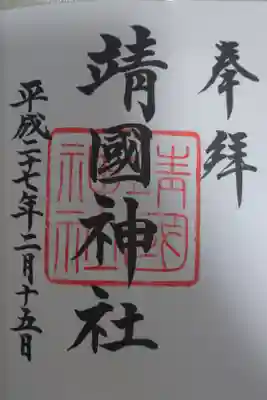 奉拝
靖國神社
平成二十七年二月十五日
靖國神社